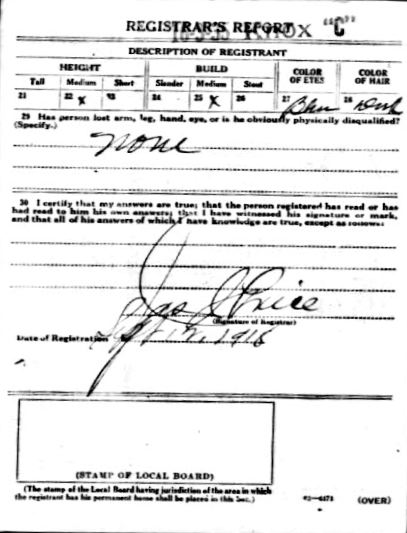 REGISTRAR'S REPORT "C"
DESCRIPTION OF REGISTRANT
HEIGHT BUILD COLOR OF EYES COLOR OF HAIR
Tall Medium Short Slender Medium Stout
21 22 x 23 24 25 x 26 27 Blue 28 Dark
29 Has person lost arm, leg, hand, eye, or is he obviously physically disqualified?
(Specify.)
None
30 I certify that my answers are true; that the person registered has read or has
had read to him his own answers; that I have witnessed his signature or mark,
and that all of his answers of which I have knowledge are true, except as follows:
Jas Price
(Signature of Registrar)
Date of Registration 12, 1918
(STAMP OF LOCAL BOARD)
(The stamp of the Local Board having jurisdiction of the area in which
the registrant has his permanent home shall be placed in this box.)
(OVER)